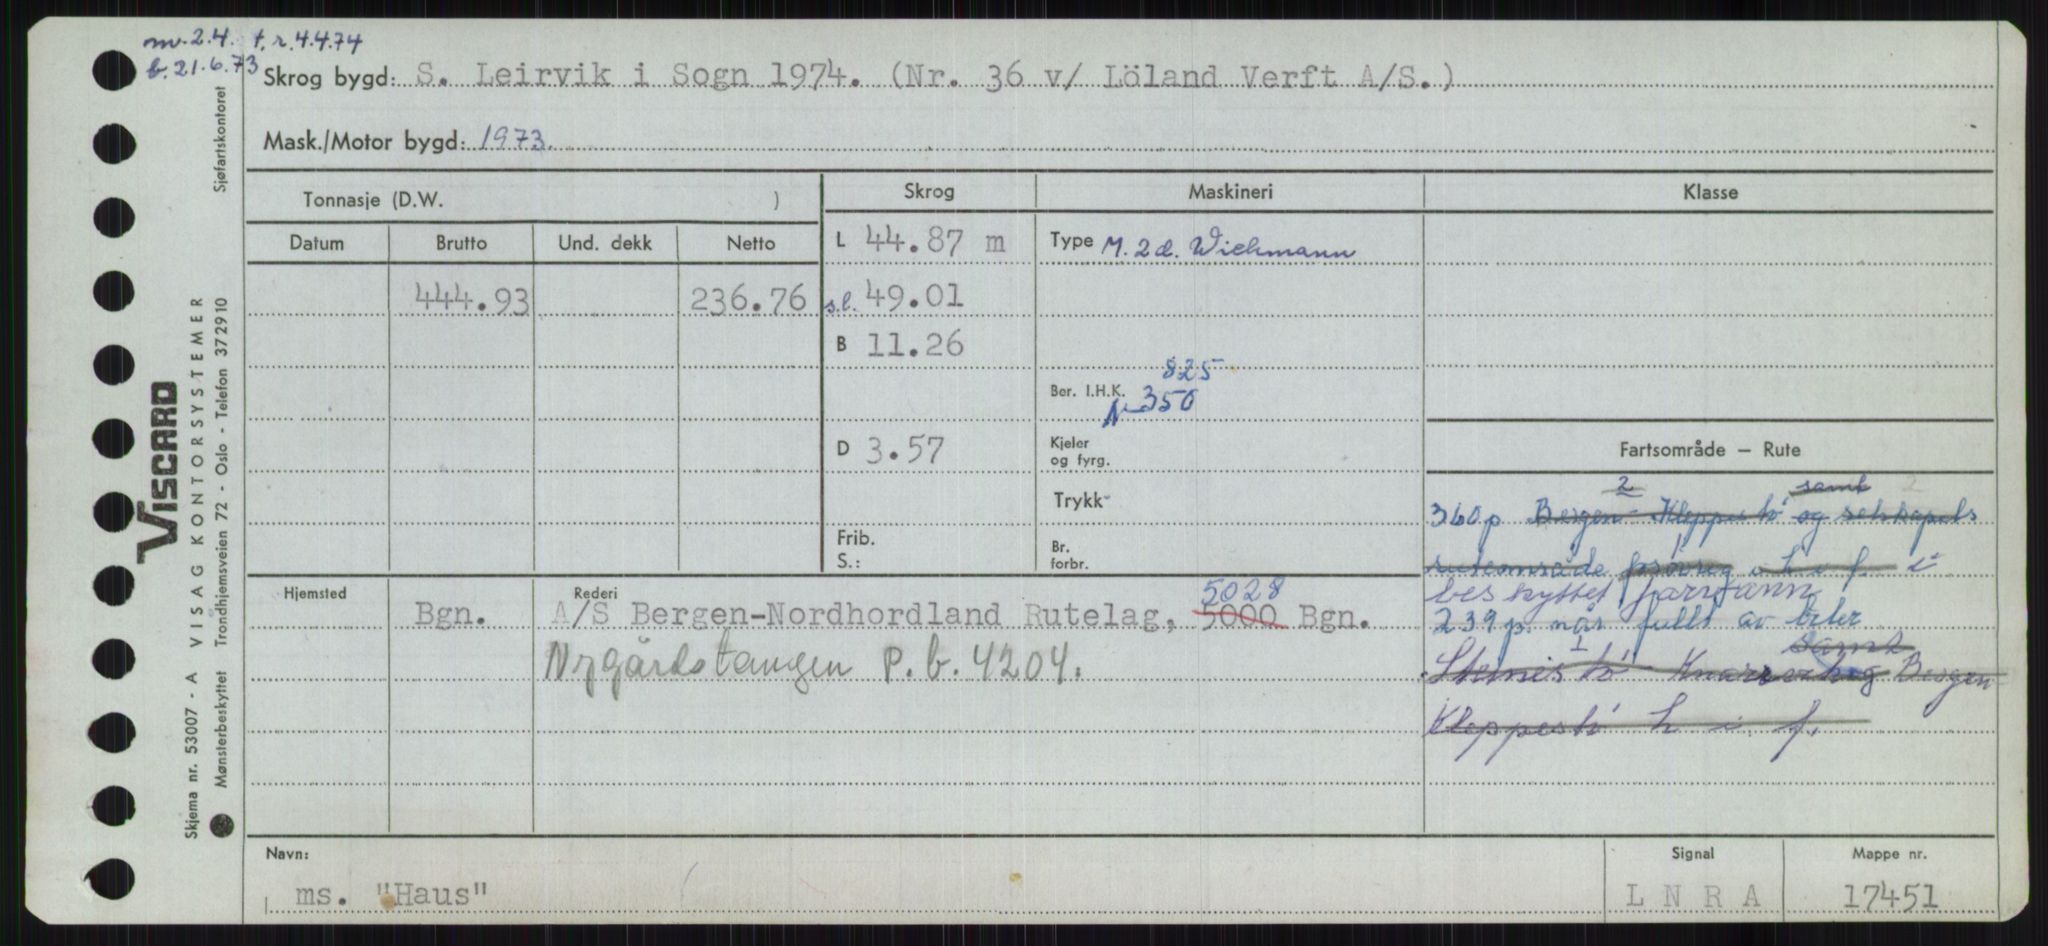 mv. 2.4. t.r. 4.4.74
b. 21.6.73
Skrog bygd: S. Leirvik i Sogn 1974. (Nr. 36 v/ Löland Verft A/S.)
Mask./Motor bygd: 1973.
Tonnasje (D.W. )
Skrog
Maskineri
Klasse
Datum Brutto Und. dekk Netto
L 44.87 m
Type M. 2 d. Wichmann
444.93 236.76
s.l. 49.01
B 11.26
Ber. I.H.K. 825
N 350
D 3.57
Kjeler
og fyrg.
Trykk
Frib.
S.:
Br.
forbr.
Fartsområde – Rute
2 samt 2
360 p Bergen - Kleppestö og selskapets
ruteområde h i f. i
beskyttet farvann
239 p. når fullt av biler
1 samt
Steinestö Knarrevik og Bergen
Kleppestö h i f.
Hjemsted
Rederi
Bgn.
A/S Bergen-Nordhordland Rutelag, 5000 5028 Bgn.
Nygårdstangen P.b. 4204.
Navn:
ms. "Haus"
Signal
L N R A
Mappe nr.
17451
Sjøfartskontoret
VISCARD
VISAG KONTORSYSTEMER
Trondhjemsveien 72 - Oslo - Telefon 372910
Skjema nr. 53007 - A
Mønsterbeskyttet